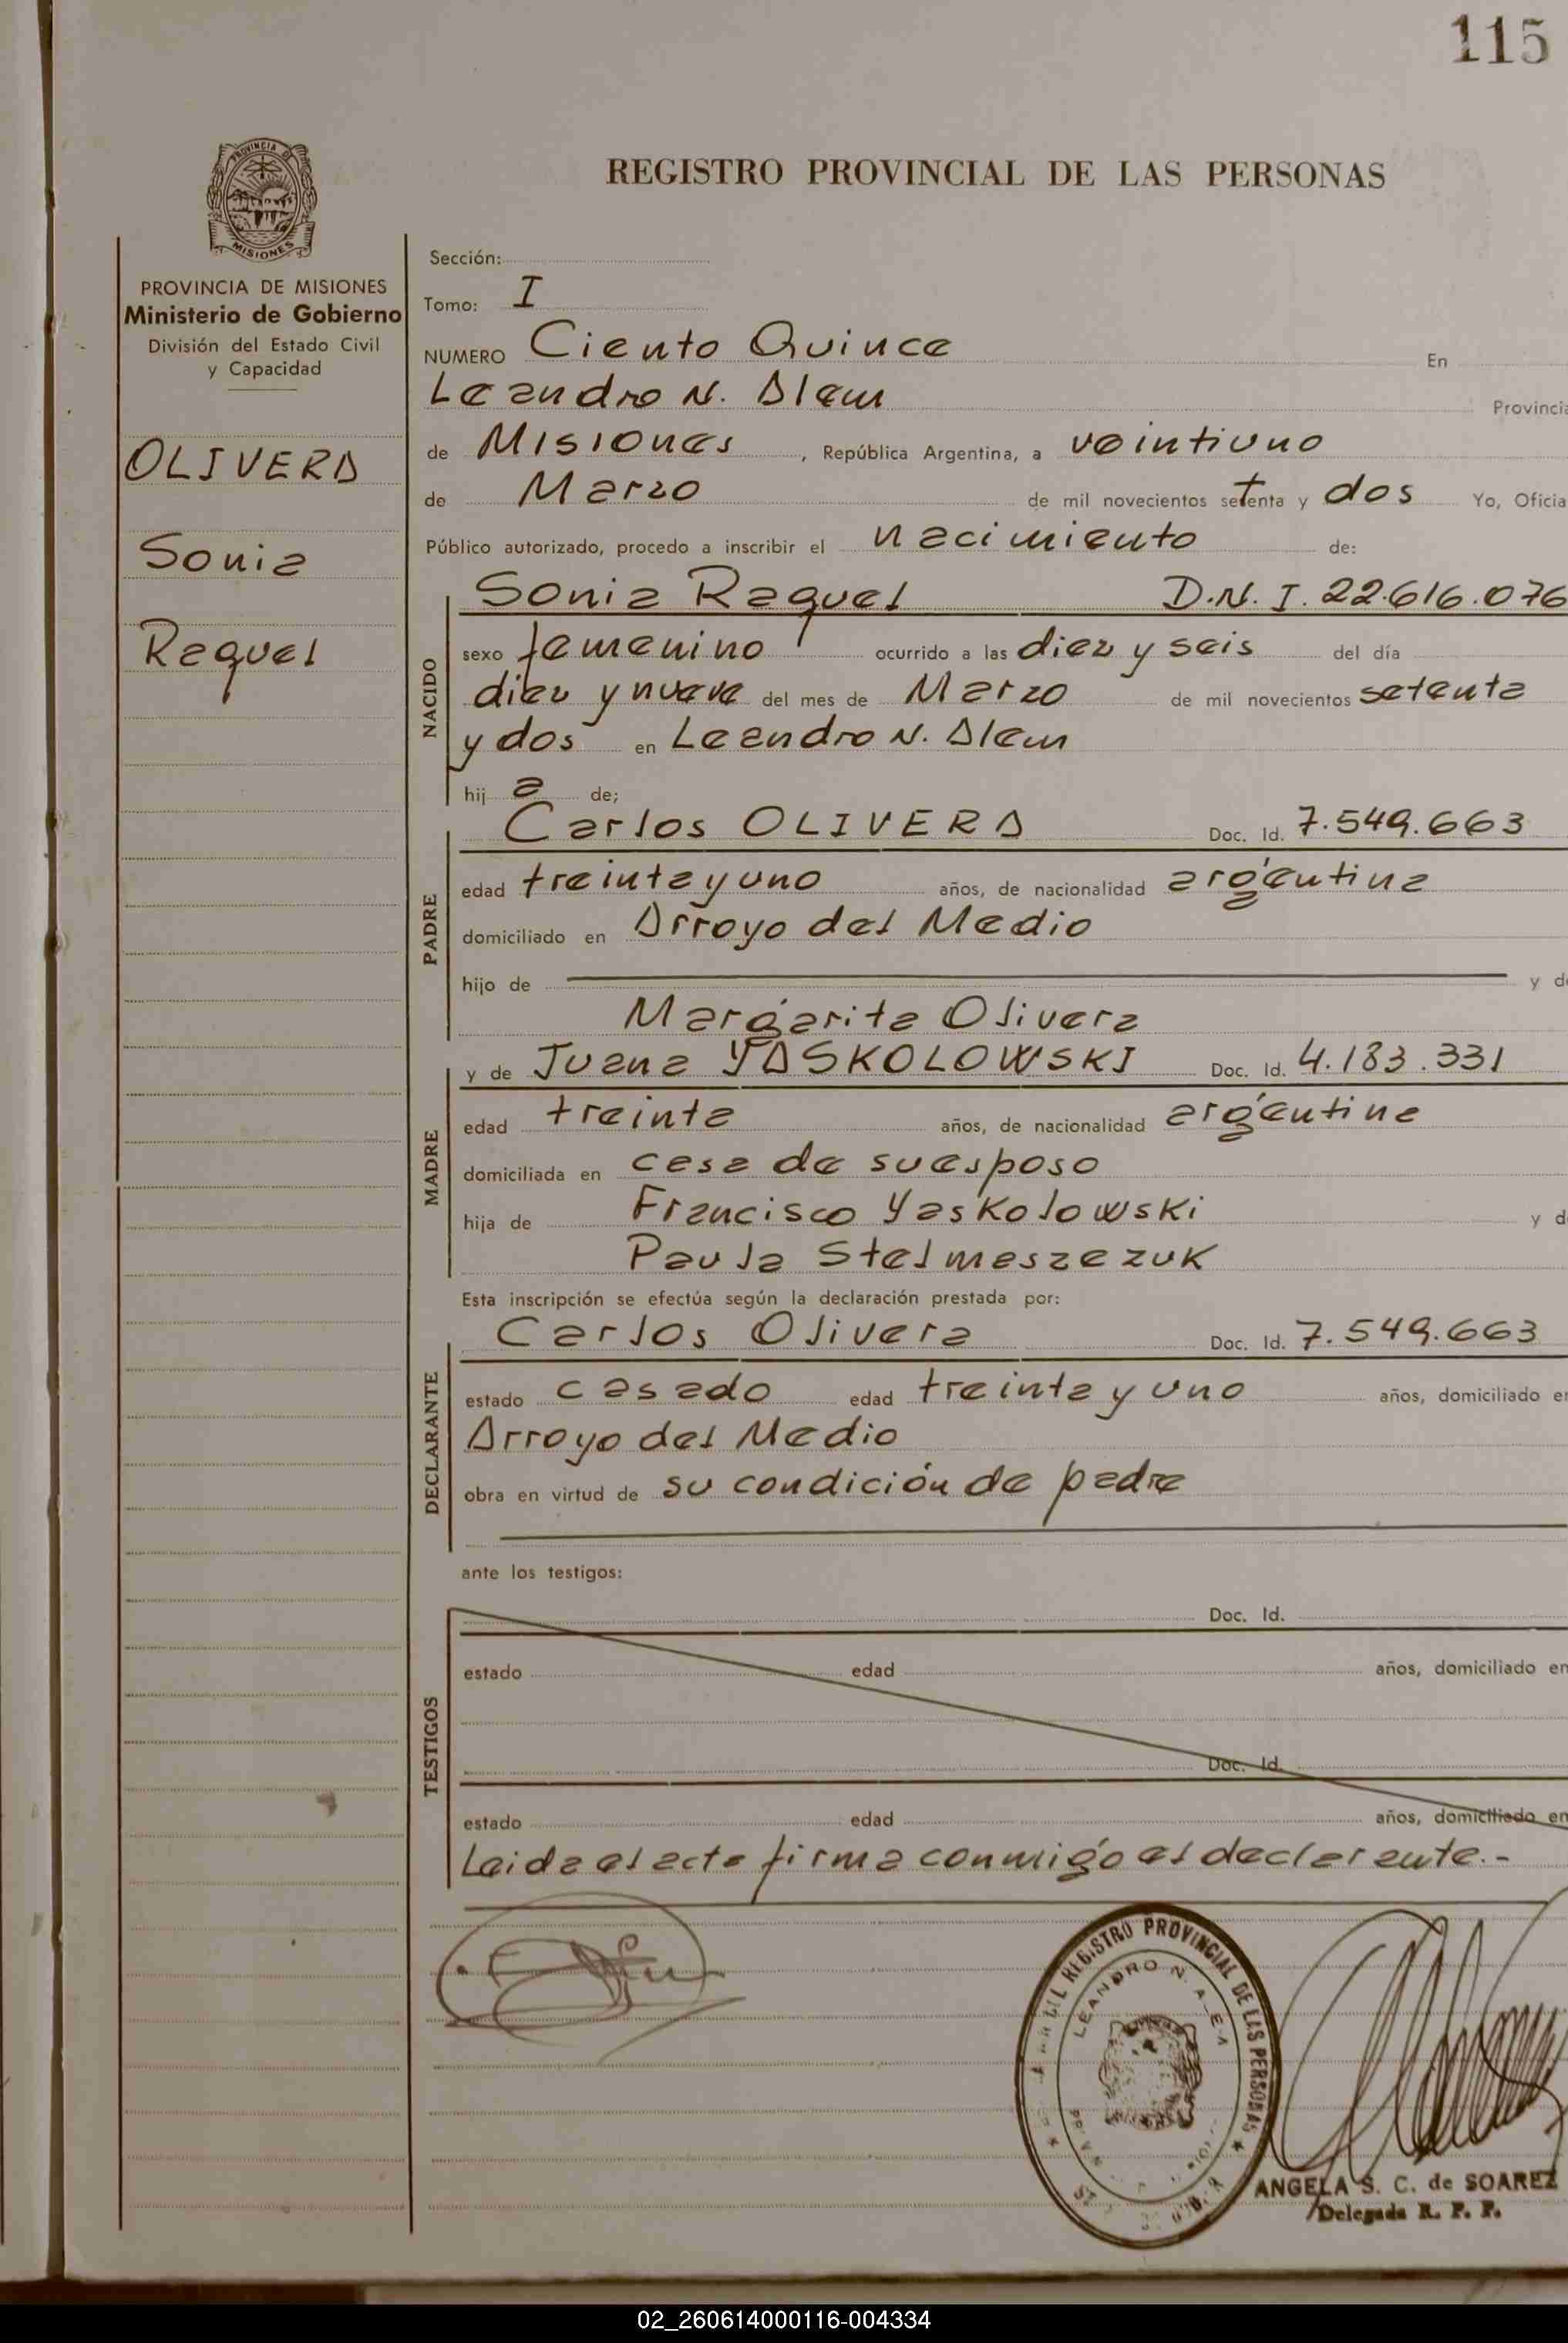 115
REGISTRO PROVINCIAL DE LAS PERSONAS
PROVINCIA DE MISIONES
Ministerio de Gobierno
División del Estado Civil
y Capacidad
OLIVERA
Sonia
Raquel
Sección:
Tomo: I
NUMERO Ciento Quince En
Leandro N. Alem Provincia
de Misiones, República Argentina, a veintiuno
de Marzo de mil novecientos setenta y dos Yo, Oficia
Público autorizado, procedo a inscribir el nacimiento de:
NACIDO
Sonia Raquel D.N.I. 22.616.076
sexo femenino ocurrido a las diez y seis del día
diez y nueve del mes de Marzo de mil novecientos setenta
y dos en Leandro N. Alem
hij a de;
PADRE
Carlos OLIVERA Doc. Id. 7.549.663
edad treinta y uno años, de nacionalidad argentina
domiciliado en Arroyo del Medio
hijo de y de
Margarita Olivera
MADRE
y de Juana YASKOLOWSKI Doc. Id. 4.183.331
edad treinta años, de nacionalidad argentina
domiciliada en casa de su esposo
hija de Francisco Yaskolowski y d
Paula Stelmaszezuk
Esta inscripción se efectúa según la declaración prestada por:
DECLARANTE
Carlos Olivera Doc. Id. 7.549.663
estado casado edad treinta y uno años, domiciliado en
Arroyo del Medio
obra en virtud de su condición de padre
ante los testigos:
TESTIGOS
Doc. Id.
estado edad años, domiciliado en
Doc. Id.
estado edad años, domiciliado en
Leida el acta firma conmigo el declarante.-
REGISTRO PROVINCIAL DE LAS PERSONAS
LEANDRO N.
ANGELA S. C. de SOAREZ
Delegada R. P. P.
02_260614000116-004334